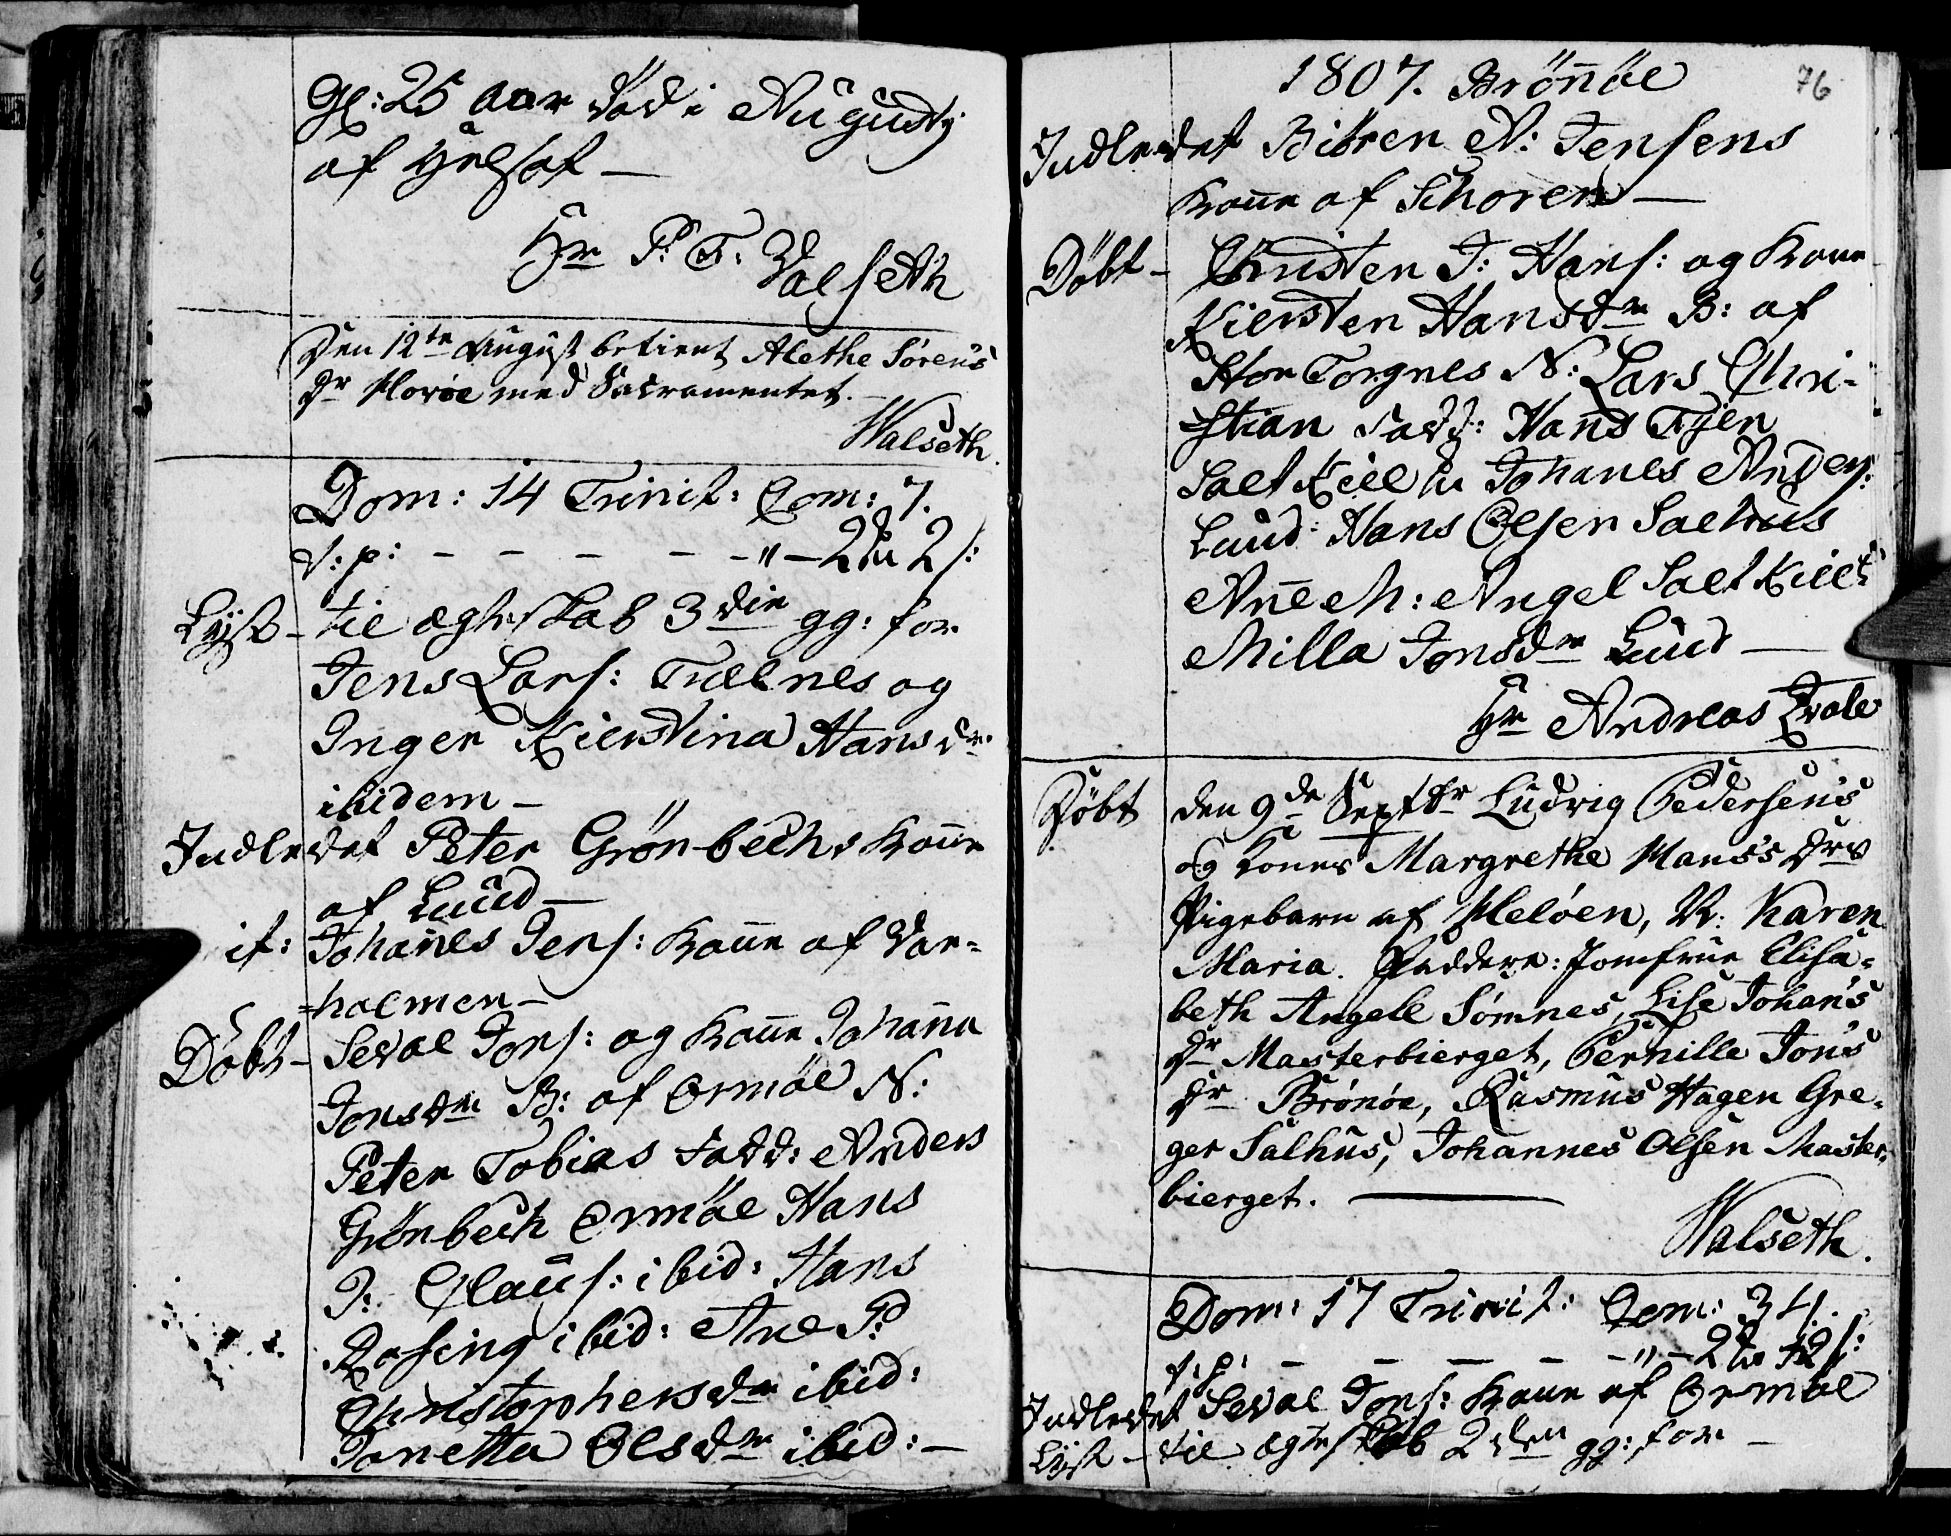 Gl: 25 aar død i Augusty
af Hielsøt —
Hr P: T: Valseth
Den 12te August betient Alethe Sørens
Dr Horøe med Sacramentet. —
Walseth
Dom: 14 Trinit: Com: 7.
S: p: - - - - - " - 2 2 s:
Lyst - til ægteskab 3die gg: for
Jens Lars: Trælnes og
Inger Kierstina Hansdr
ibidem —
Indledet Peter Grönbechs kone
af Lund —
it: Johannes Jens: kone af Var=
=holmen —
Döbt - Seval Jons: og kone Johanna
Jonsdr B: af Ormöe N:
Peter Tobias fadd: Anders
Grönbech Ormöe Hans
P: Claus: ibid: Hans
Rosing ibid: Ane P:
Christophersdr ibid:
Jonetta Olsdr ibid: —
76
1807. Brönöe
Indledet Biören A: Jensens
kone af Schoren —
Döbt - Christen J: Hans: og kone
Kiersten Hansdr B: af
Stor Torgnes N: Lars Chri-
-stian fadd: Hans Tjen
Saltkiel Johanes Anders:
Lund Hans Olsen Salhus
Anne M: Angel Saltkiel
Milla Jonsdr Lund —
Hr Andreas Qvale
Döbt den 9de Septbr Ludvig Pedersens
og kones Margrethe Hans's Drs
Pigebarn af Meløen, N: Karen
Maria. Faddere: Jomfrue Elisa=
beth Angell Sömnes, Lise Johans
Dr Masterbierget, Pernille Jons
Dr Brönöe, Rasmus Hagen Gre=
ger Salhus, Johannes Olsen Master=
bierget. —
Walseth.
Dom: 17 Trinit: Com: 34.
S: p: - - - - - " - 2 12 s:
Indledet Seval Jons: kone af Ormöe
Lyst - til ægteskab 2den gg: for —